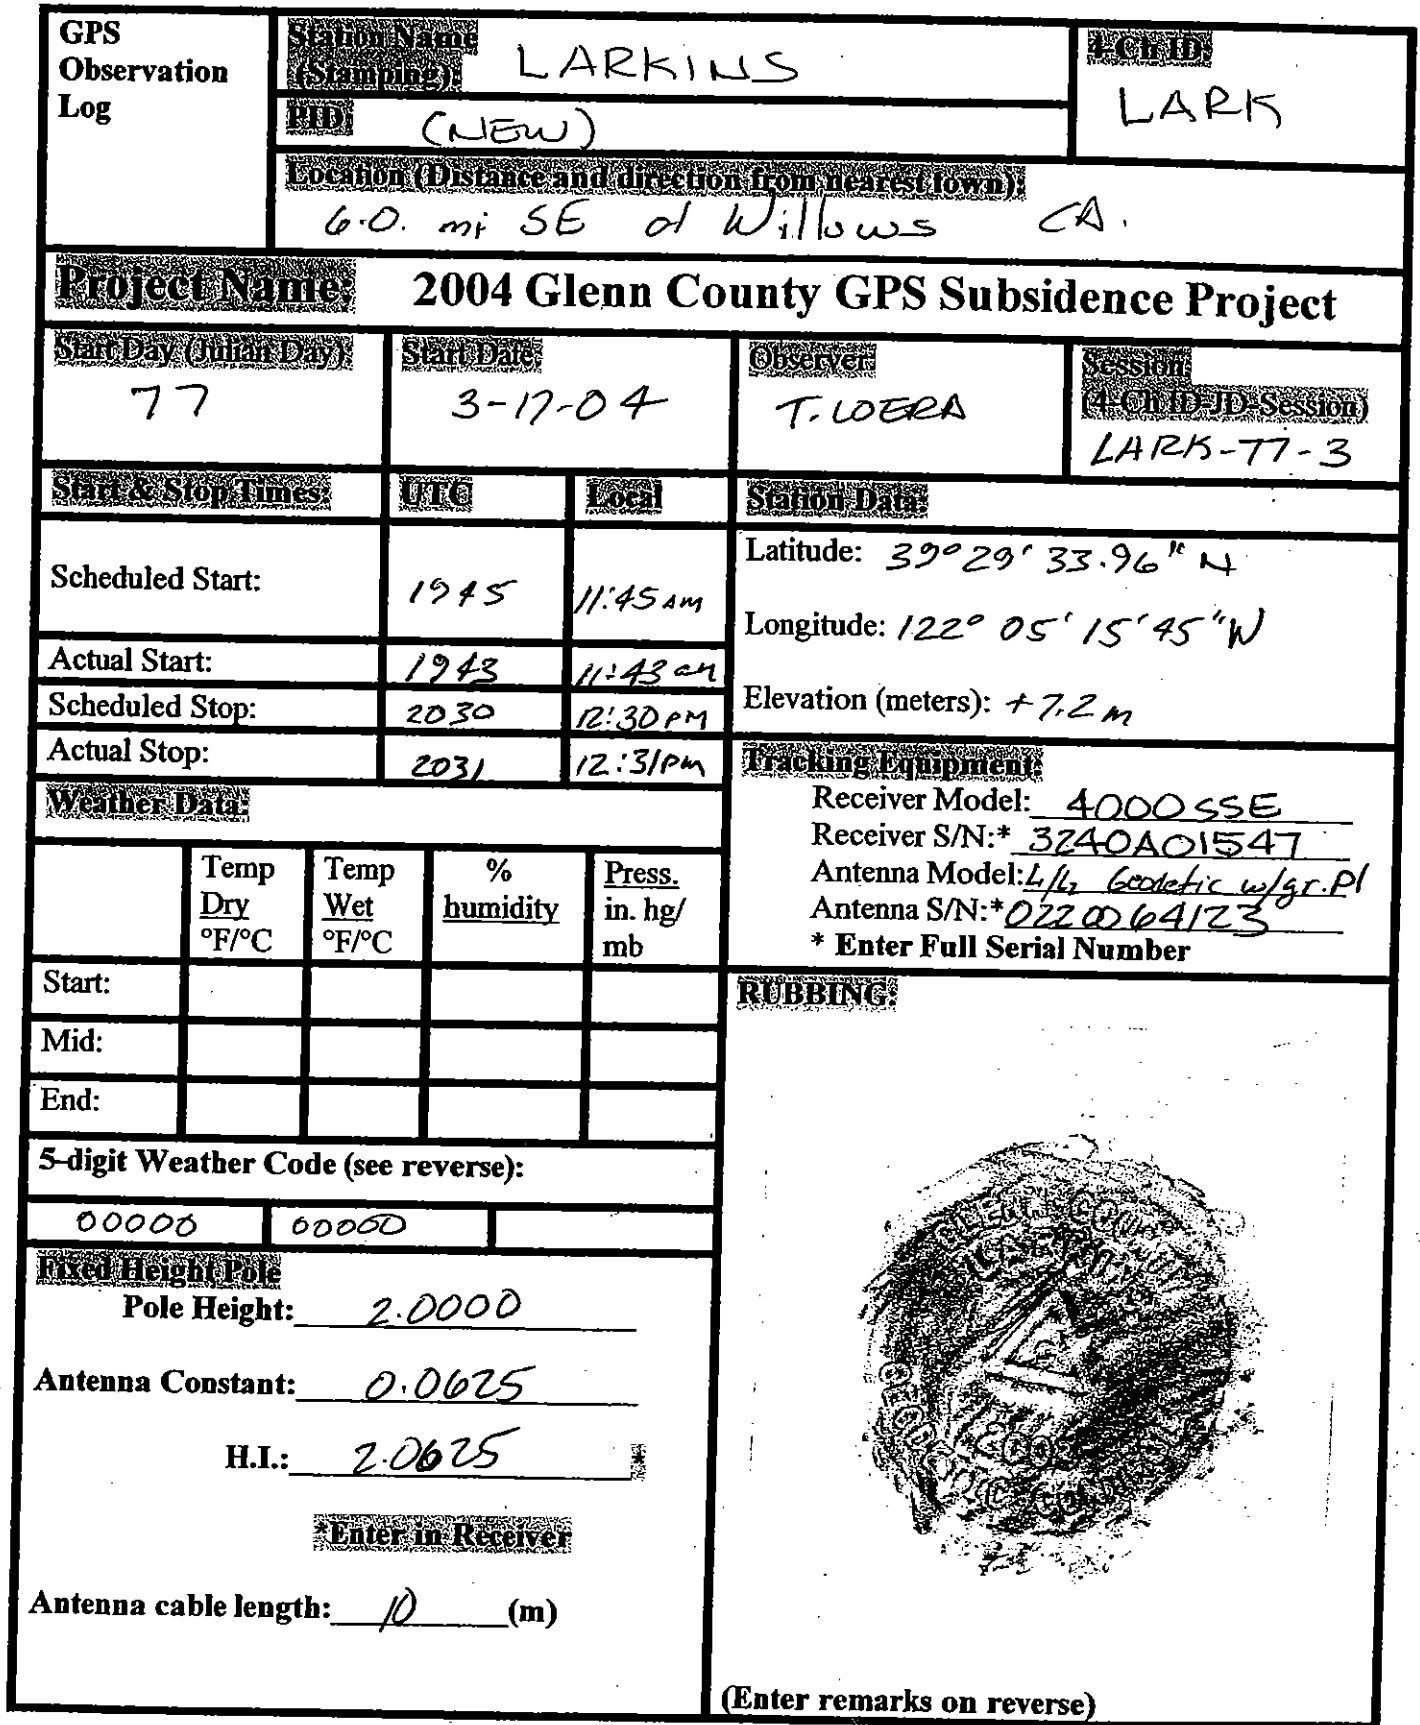 GPS
Observation
Log
Station Name
(Stamping): LARKINS
4-Ch ID:
LARK
PID: (NEW)
Location (Distance and direction from nearest town):
6.0. mi SE of Willows CA.
Project Name: 2004 Glenn County GPS Subsidence Project
Start Day (Julian Day):
77
Start Date:
3-17-04
Observer:
T. LOERA
Session:
(4-Ch ID-JD-Session)
LARK-77-3
Start & Stop Times: UTC Local
Scheduled Start: 1945 11:45 AM
Actual Start: 1943 11:43 am
Scheduled Stop: 2030 12:30 PM
Actual Stop: 2031 12:31 pm
Station Data:
Latitude: 39° 29' 33.96" N
Longitude: 122° 05' 15'45" W
Elevation (meters): +7.2 m
Tracking Equipment:
Receiver Model: 4000SSE
Receiver S/N:* 3240A01547
Antenna Model: Geodetic w/gr.Pl
Antenna S/N:* 0220064123
* Enter Full Serial Number
Weather Data:
Temp
Dry
°F/°C
Temp
Wet
°F/°C
%
humidity
Press.
in. hg/
mb
Start:
Mid:
End:
5-digit Weather Code (see reverse):
00000 00000
Fixed Height Pole
Pole Height: 2.0000
Antenna Constant: 0.0625
H.I.: 2.0625 *
*Enter in Receiver
Antenna cable length: 10 (m)
RUBBING:
(Enter remarks on reverse)